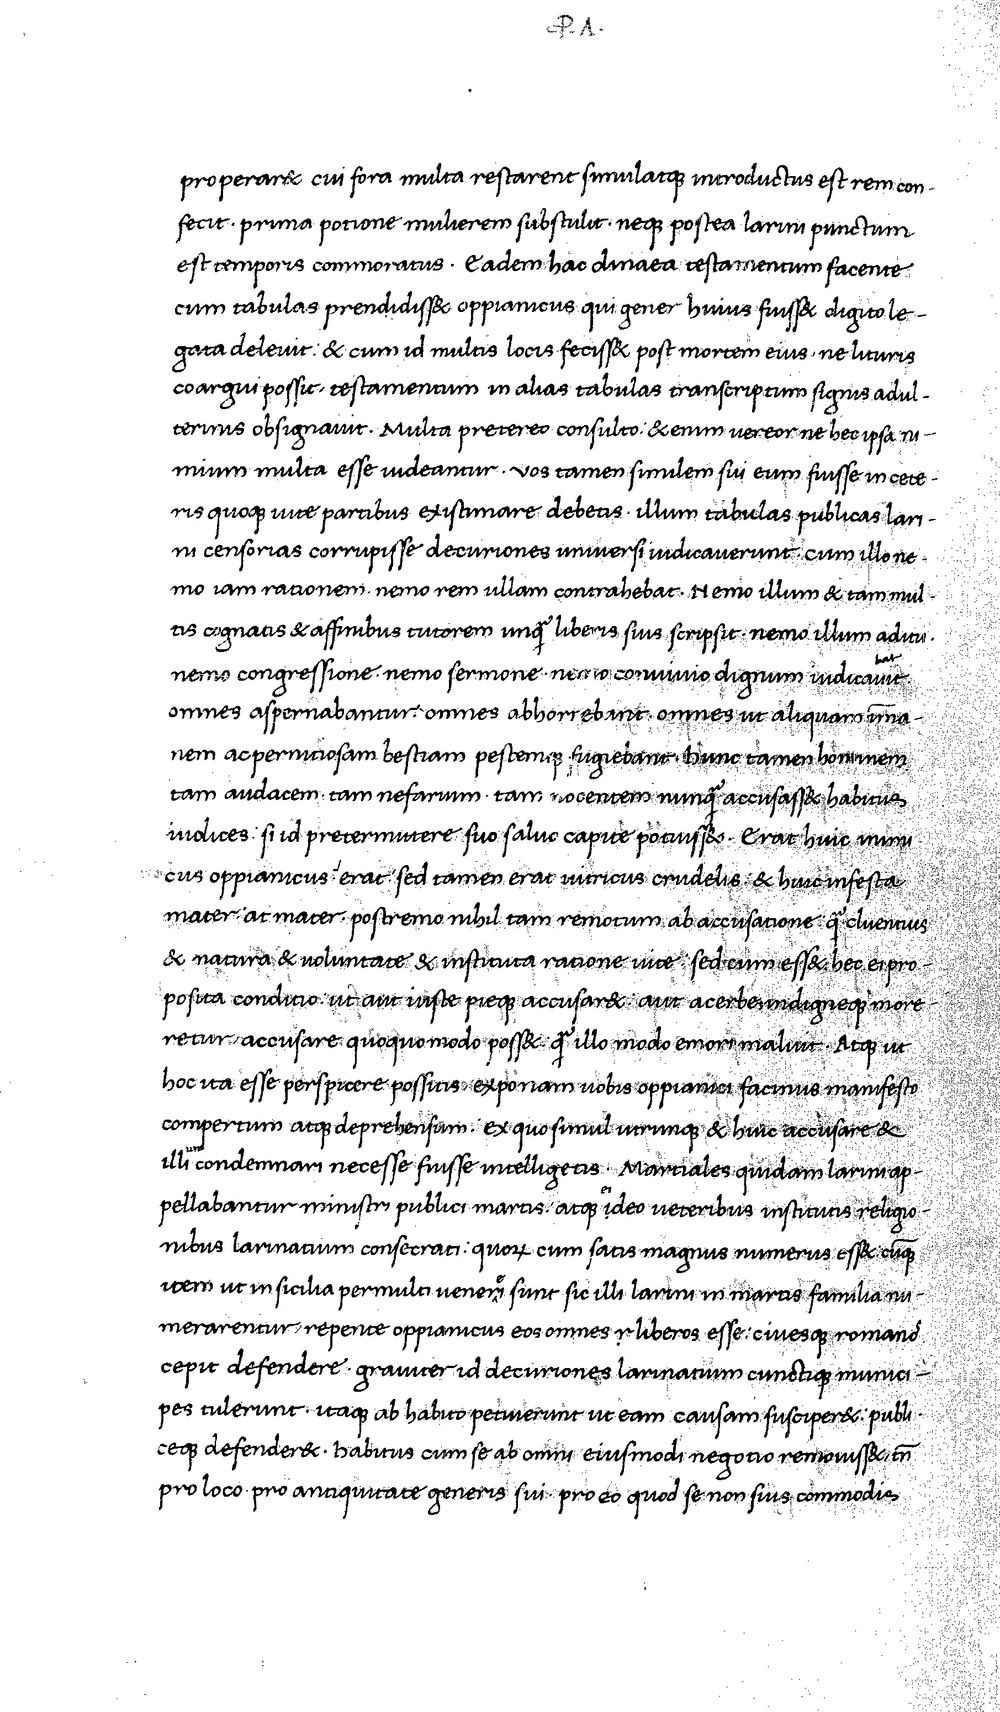 ·P·A·
properar& cui fora multa restarent simulatq; introductus est rem con-
fecit · prima potione mulierem substulit · neq; postea larini punctum
est temporis commoratus · Eadem hac dinaea testamentum faciente
cum tabulas prendidiss& oppianicus qui gener huius fuiss& digito le-
gata deleuit: & cum id multis locis feciss& post mortem eius · ne lituris
coargui possit · testamentum in alias tabulas transcriptum signis adul-
terinis obsignauit · Multa pretereo consulto: &enim uereor ne hec ipsa ni-
mium multa esse uideantur · vos tamen similem sui eum fuisse in cete-
ris quoq; uite partibus existimare debetis · illum tabulas publicas lari-
ni censorias corrupisse decuriones uniuersi iudicauerunt · cum illo ne-
mo iam rationem · nemo rem ullam contrahebat · Nemo illum & tam mul-
tis cognatis & affinibus tutorem unq̃ liberis suis scripsit · nemo illum aditu ·
nemo congressione · nemo sermone · nemo conuiuio dignum iudicauit bat
omnes aspernabantur: omnes abhorrebant · omnes ut aliquam īma-
nem ac perniciosam bestiam pestemq; fugiebant · Hunc tamen hominem
tam audacem · tam nefarium · tam nocentem nunq̃ accusass& habitus
iudices: si id pretermittere suo saluo capite potuiss& · Erat huic inimi
cus oppianicus · erat · sed tamen erat uitricus crudelis: & huic infesta
mater · at mater · postremo nihil tam remotum ab accusatione q̃ cluentius
& natura & uoluntate & instituta ratione uite: sed cum ess& hec ei pro-
posita conditio: ut aut iuste pieq; accusar&: aut acerbe indigneq; more-
retur · accusare quoquo modo poss& q̃ illo modo emori maluit · Atq; ut
hoc ita esse perspicere possitis · exponam uobis oppianici facinus manifesto
compertum atq; deprehensum · ex quo simul utrunq; & huic accusare &
illi condemnari necesse fuisse intelligetis · Martiales quidam larini ap-
pellabantur ministri publici martis: atq; ideo ueteribus institutis religio-
nibus larinatium consecrati: quoꝝ cum satis magnus numerus ess& cūq;
item ut in sicilia permulti venerij sunt sic illi larini in martis familia nu-
merarentur · repente oppianicus eos omnes liberos esse: ciuesq; romanos
cepit defendere · grauiter id decuriones larinatium cunctiq; munici-
pes tulerunt · itaq; ab habito petiuerunt ut eam causam susciper& · publi-
ceq; defender& · Habitus cum se ab omni eiusmodi negotio remouiss&, tn̄
pro loco · pro antiquitate generis sui · pro eo quod se non suis commodis